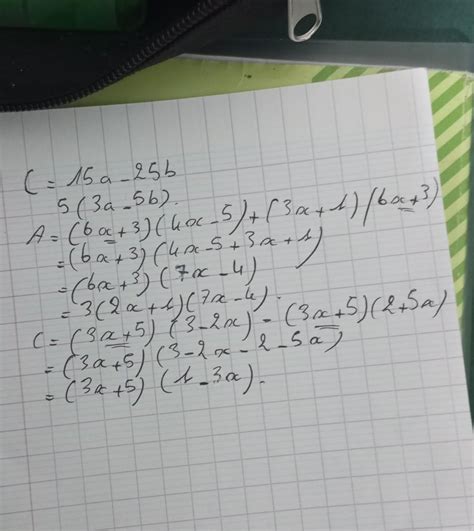 C = 15a - 25b
5(3a - 5b).
A = (6x+3)(4x-5)+(3x+1)(6x+3)
= (6x+3)(4x-5+3x+1)
= (6x+3)(7x-4)
= 3(2x+1)(7x-4).
C = (3x+5)(3-2x) - (3x+5)(2+5x)
= (3x+5)(3-2x-2-5x)
= (3x+5)(1-3x).